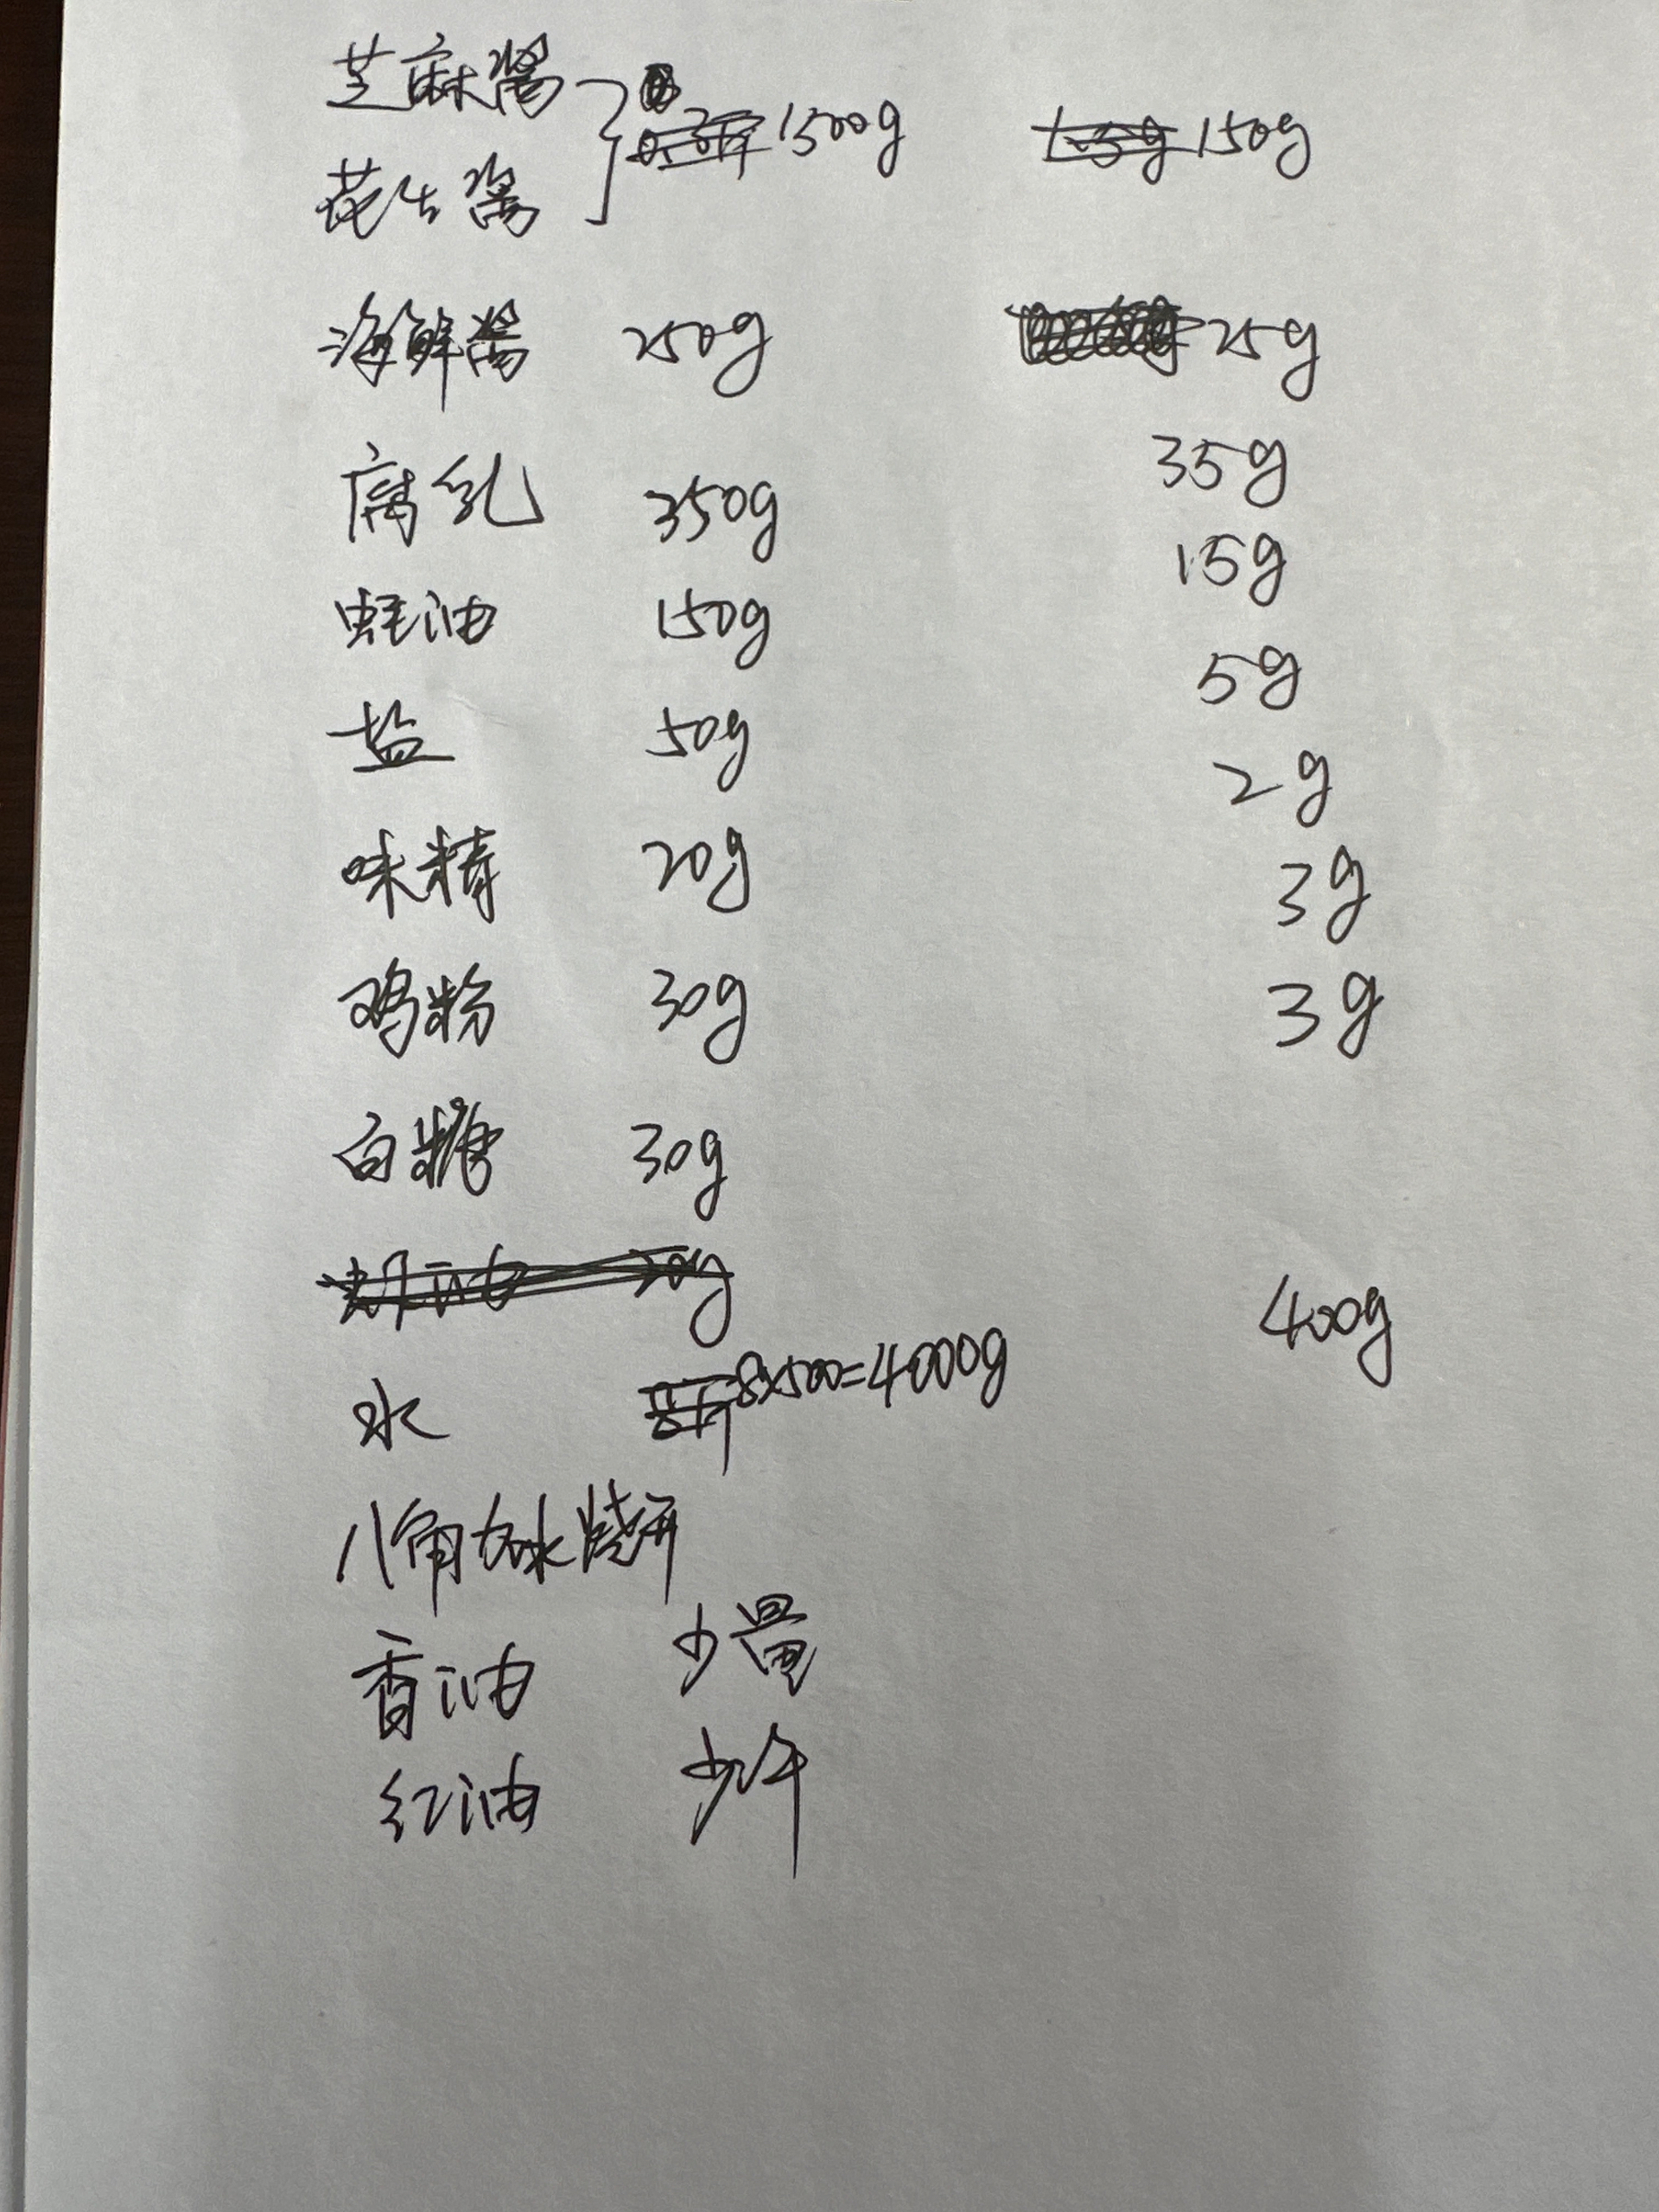 芝麻酱
花生酱 } 1500g 150g
海鲜酱 250g 25g
腐乳 350g 35g
蚝油 150g 15g
盐 50g 5g
味精 20g 2g
鸡粉 30g 3g
白糖 30g 3g
水 8x500=4000g 400g
八角 水烧开
香油 少量
红油 少许